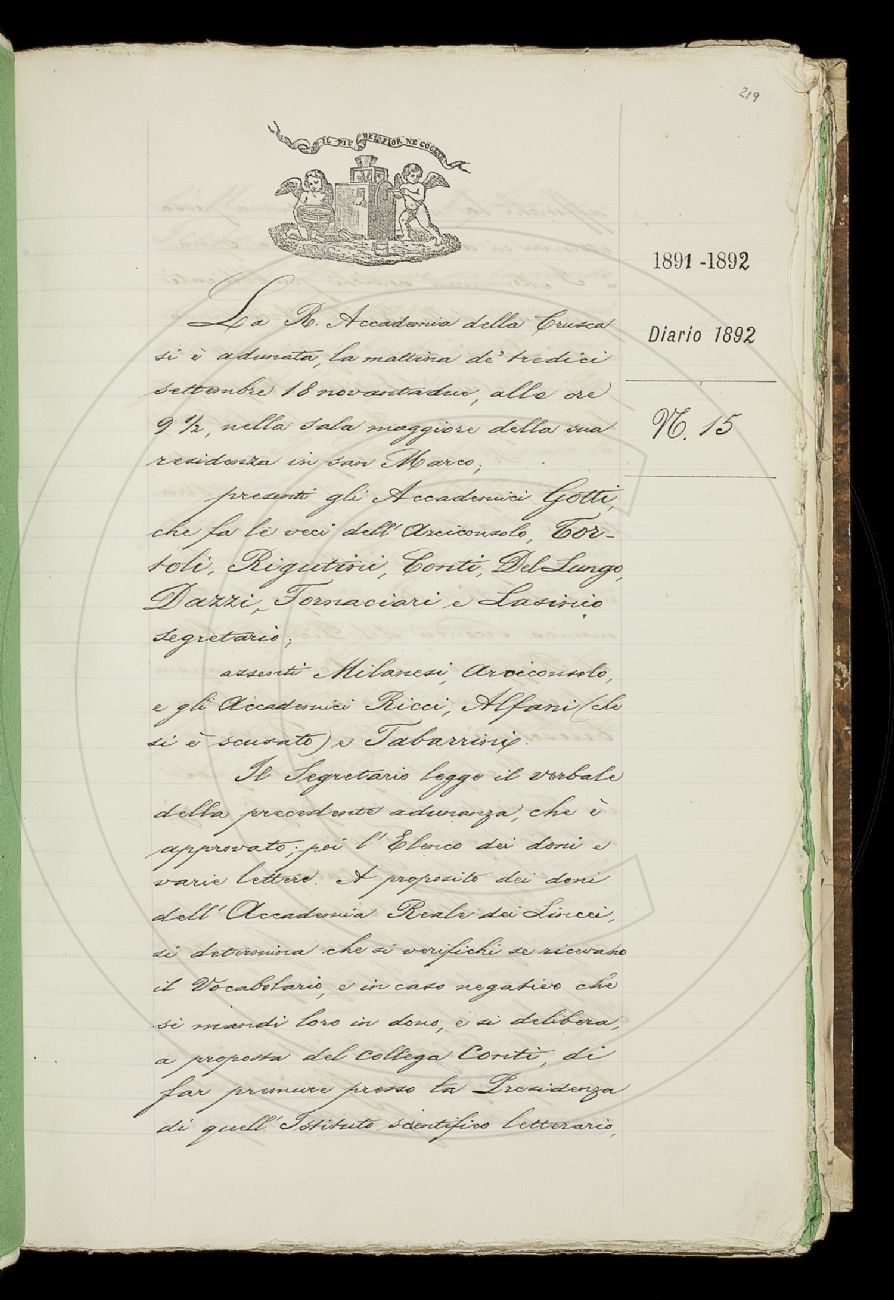 219
IL PIÙ BEL FIOR NE COGLIE
1891-1892
Diario 1892
N. 15
La R. Accademia della Crusca
si è adunata, la mattina de' tredici
settembre 18 novantadue, alle ore
9 ½, nella sala maggiore della sua
residenza in san Marco;
presenti gli Accademici Gotti,
che fa le veci dell'Arciconsolo, Tor-
toli, Rigutini, Conti, Del Lungo,
Dazzi, Fornaciari e Lasinio
segretario;
assenti Milanesi, Arciconsolo,
e gli Accademici Ricci, Alfani (che
si è scusato) e Tabarrini.
Il Segretario legge il verbale
della precedente adunanza, che è
approvato; poi l'Elenco dei doni e
varie lettere. A proposito dei doni
dell'Accademia Reale dei Lincei,
si determina che si verifichi se ricevano
il Vocabolario, e in caso negativo che
si mandi loro in dono, e si delibera,
a proposta del collega Conti, di
far premure presso la Presidenza
di quell'Istituto scientifico letterario,